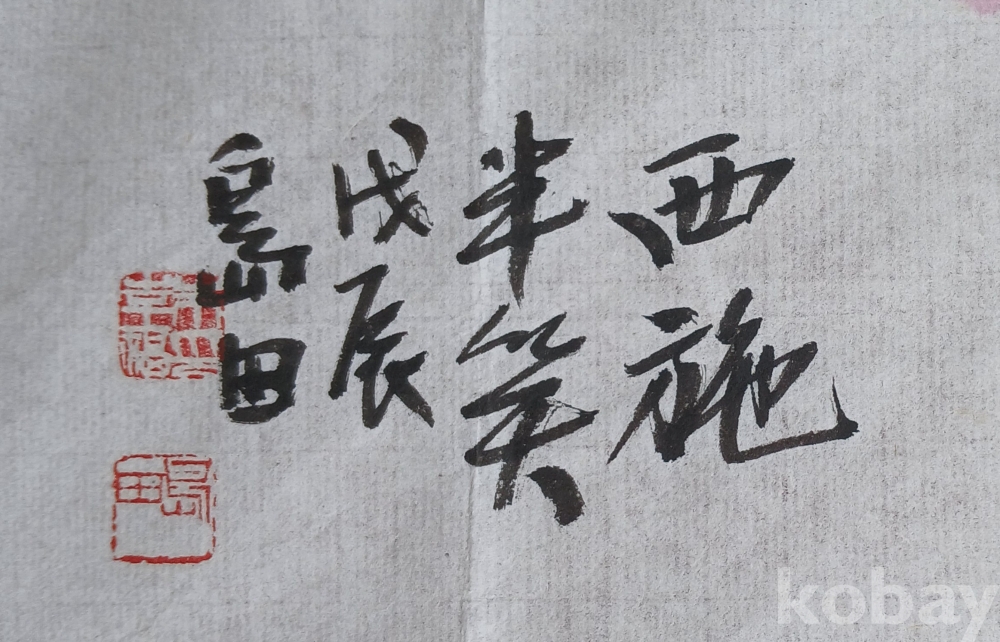 西施
半笑
戊辰
島田
島田
kobay